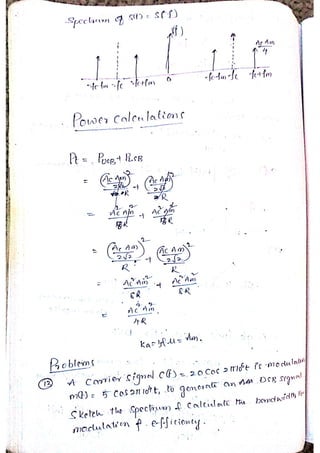 Spectrum of S(t) = S(f)
S(f)
Ac Am
4
-fc-fm -fc -fc+fm 0 fc-fm fc fc+fm
Power Calculations
Pt = PUSB + PLSB
= (Ac Am / 2√2)² / R + (Ac Am / 2√2)² / R
= Ac² Am² / 8R + Ac² Am² / 8R
= (Ac Am / 2√2)² / R + (Ac Am / 2√2)² / R
= Ac² Am² / 8R + Ac² Am² / 8R
= Ac² Am² / 4R
Ka = 1/ μ = Am.
Problems
A Carrier Signal C(t) = 20 Cos 2π10⁶t is modulated
m(t) = 5 Cos 2π10³t, to generate an AM DSB Signal
Sketch the Spectrum & Calculate the bandwidth,
modulation efficiency.